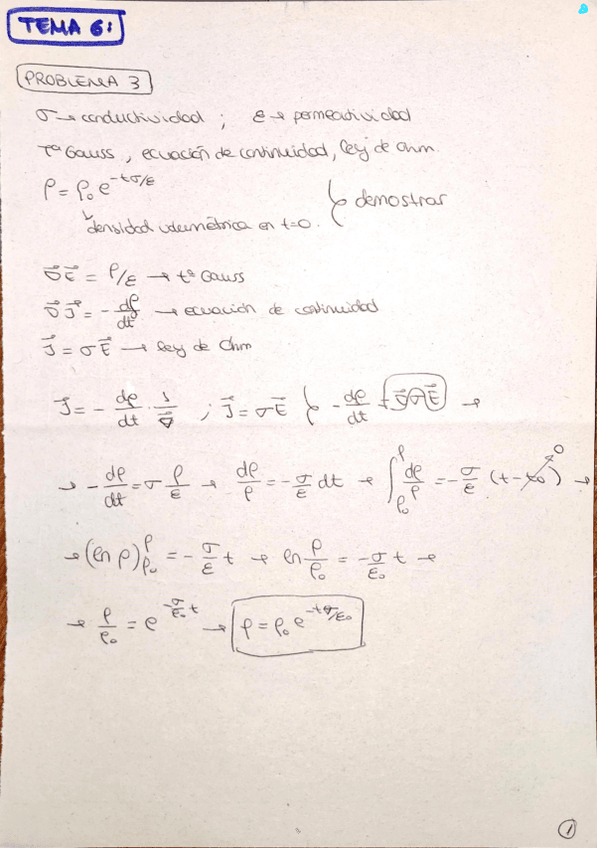 TEMA 6:
PROBLEMA 3
σ → conductividad ; ε → permeactividad
Tª Gauss, ecuación de continuidad, ley de Ohm.
ρ = ρ₀ e^(-tσ/ε) } demostrar
↳ densidad volumétrica en t=0.
∇⃗ E⃗ = ρ/ε → tª Gauss
∇⃗ J⃗ = - dρ/dt → ecuación de continuidad
J⃗ = σ E⃗ → ley de Ohm
J⃗ = - dρ/dt · 1/∇⃗ ; J⃗ = σ E⃗ } - dρ/dt = ∇⃗ σ E⃗ →
→ - dρ/dt = σ ρ/ε → dρ/ρ = - σ/ε dt → ∫_ρ₀^ρ dρ/ρ = - σ/ε (t - t₀) → 0
→ (ln ρ)_ρ₀^ρ = - σ/ε t → ln ρ/ρ₀ = - σ/ε₀ t →
→ ρ/ρ₀ = e^(-σ/ε₀ t) → ρ = ρ₀ e^(-tσ/ε₀)
1